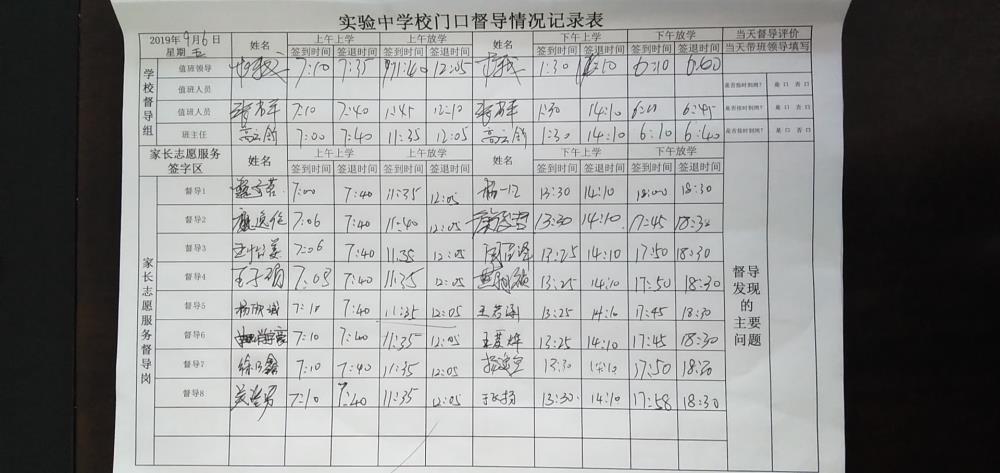 实验中学校门口督导情况记录表
2019年9月6日 星期五 姓名 上午上学 上午放学 姓名 下午上学 下午放学 当天督导评价
签到时间 签退时间 签到时间 签退时间 签到时间 签退时间 签到时间 签退时间 当天带班领导填写
学校督导组
值班领导 7:10 7:35 11:40 12:05 1:30 6:10
值班人员 是否按时到岗? 是 口 否 口
值班人员 7:10 7:40 12:10 1:30 14:10 6:45 是否按时到岗? 是 口 否 口
班主任 7:00 7:40 11:35 12:05 1:30 14:10 6:10 6:40 是否按时到岗? 是 口 否 口
家长志愿服务签字区 姓名 上午上学 上午放学 姓名 下午上学 下午放学
签到时间 签退时间 签到时间 签退时间 签到时间 签退时间 签到时间 签退时间
家长志愿服务督导岗
督导1 7:00 7:40 11:35 12:05 杨一 13:30 14:10 18:00 18:30
督导2 7:06 7:40 11:40 12:05 13:30 14:10 17:45 18:30
督导3 7:06 7:40 11:35 12:05 13:25 14:10 17:50 18:30
督导4 王子 7:08 7:40 11:35 12:05 13:25 14:10 17:50 18:30
督导5 杨欣 7:10 7:40 11:35 12:05 王若涵 13:25 14:10 17:45 18:30
督导6 7:10 7:40 11:35 12:05 13:25 14:10 17:45 18:30
督导7 7:10 7:40 11:35 12:05 13:30 14:10 17:50 18:30
督导8 7:10 7:40 11:35 12:05 13:30 14:10 17:58 18:30
督导发现的主要问题